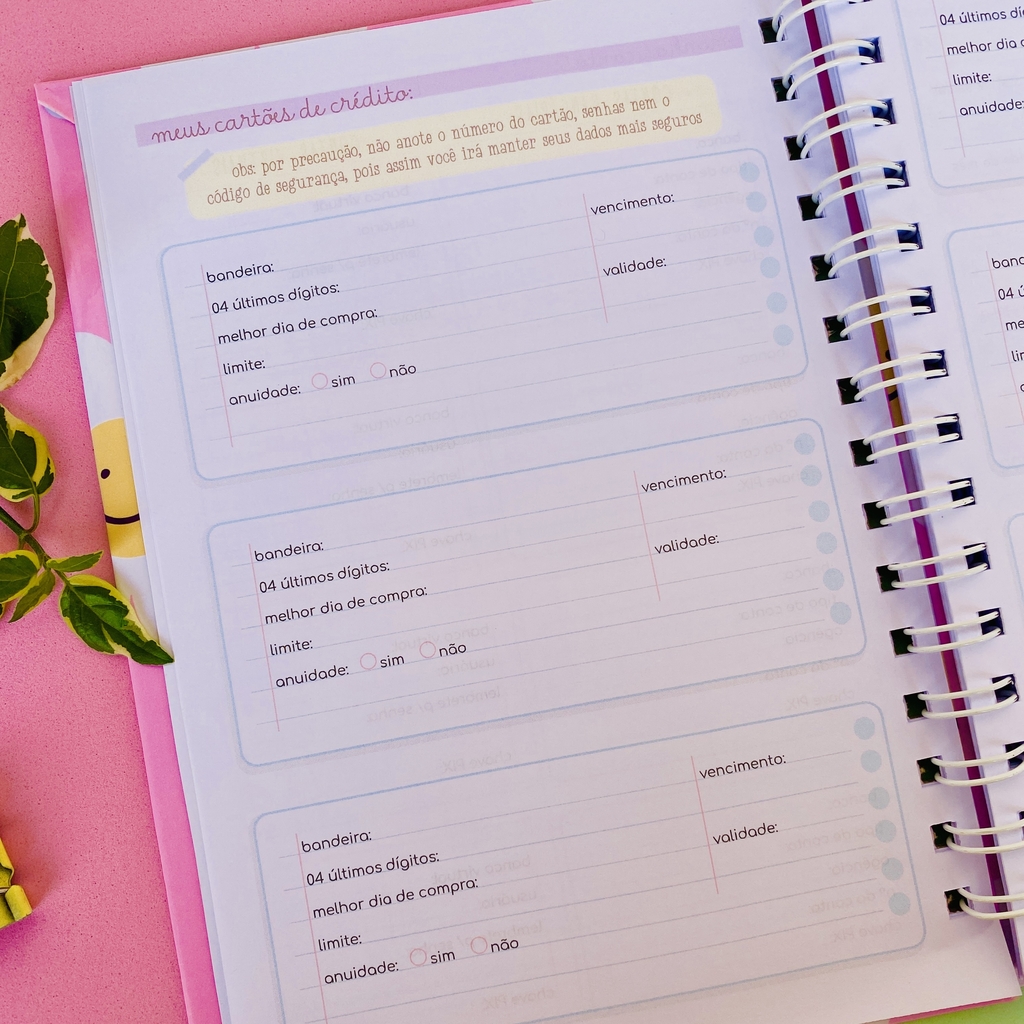 meus cartões de crédito:
obs: por precaução, não anote o número do cartão, senhas nem o
código de segurança, pois assim você irá manter seus dados mais seguros
bandeira:
04 últimos dígitos:
melhor dia de compra:
limite:
anuidade: sim não
vencimento:
validade:
bandeira:
04 últimos dígitos:
melhor dia de compra:
limite:
anuidade: sim não
vencimento:
validade:
bandeira:
04 últimos dígitos:
melhor dia de compra:
limite:
anuidade: sim não
vencimento:
validade:
04 últimos
melhor dia
limite:
anuidade:
04